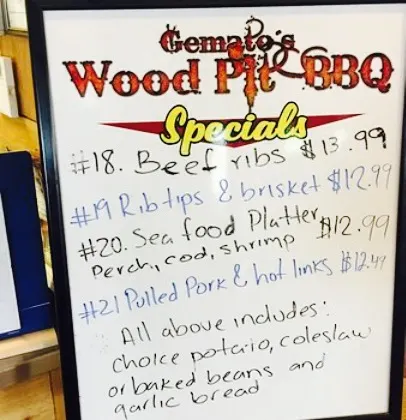 Gemato's
Wood Pit BBQ
Specials
#18. Beef ribs $13.99
#19 Rib tips & brisket $12.99
#20. Sea food Platter $12.99
Perch, cod, shrimp
#21 Pulled Pork & hot links $12.49
All above includes:
choice potato, coleslaw
or baked beans and
garlic bread